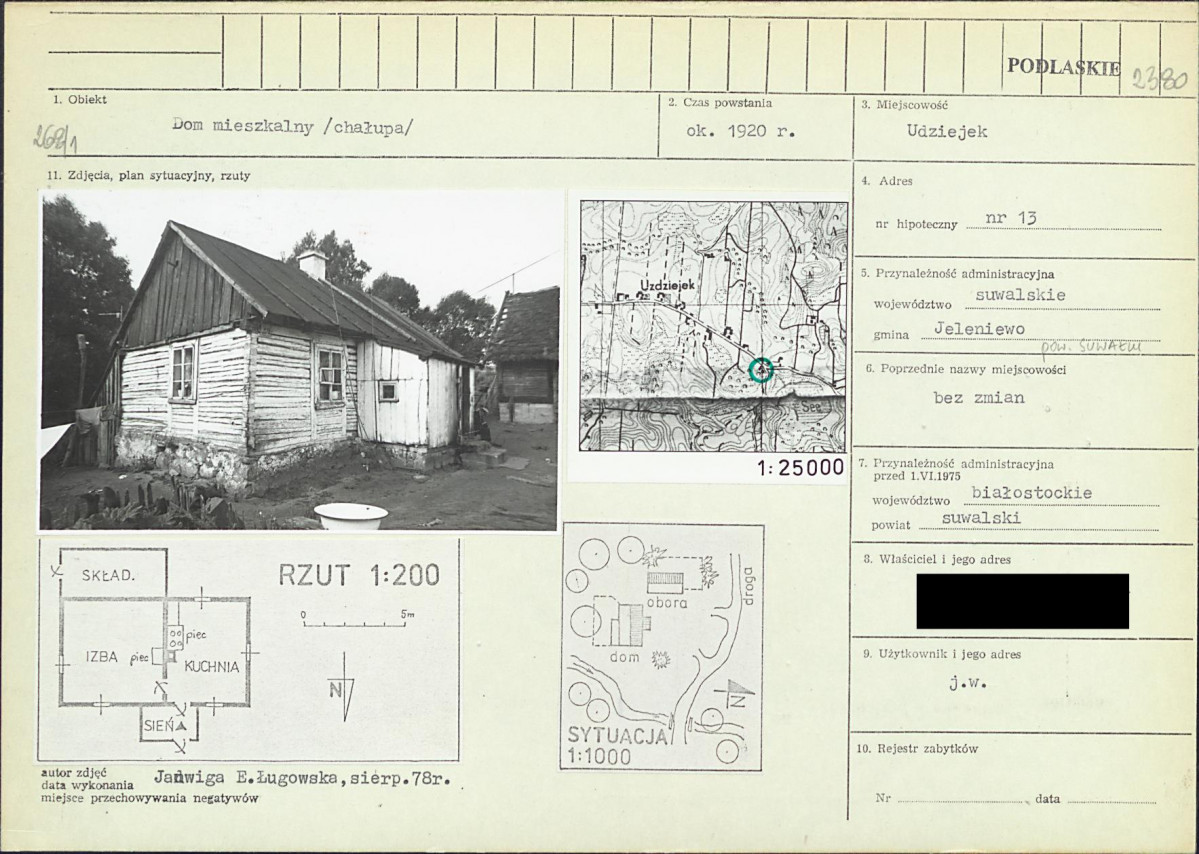 PODLASKIE 2380
1. Obiekt
Dom mieszkalny /chałupa/
2. Czas powstania
ok. 1920 r.
3. Miejscowość
Udziejek
11. Zdjęcia, plan sytuacyjny, rzuty
4. Adres
nr hipoteczny nr 13
5. Przynależność administracyjna
województwo suwalskie
gmina Jeleniewo
pow. SUWAŁKI
6. Poprzednie nazwy miejscowości
bez zmian
7. Przynależność administracyjna
przed 1.VI.1975
województwo białostockie
powiat suwalski
8. Właściciel i jego adres
9. Użytkownik i jego adres
j.w.
10. Rejestr zabytków
Nr data
Uzdziejek
1:25000
RZUT 1:200
0 5m
SKŁAD.
IZBA
piec
piec
KUCHNIA
SIEŃ
N
obora
dom
droga
N
SYTUACJA
1:1000
autor zdjęć
data wykonania
miejsce przechowywania negatywów
Jadwiga E.Ługowska,sierp.78r.